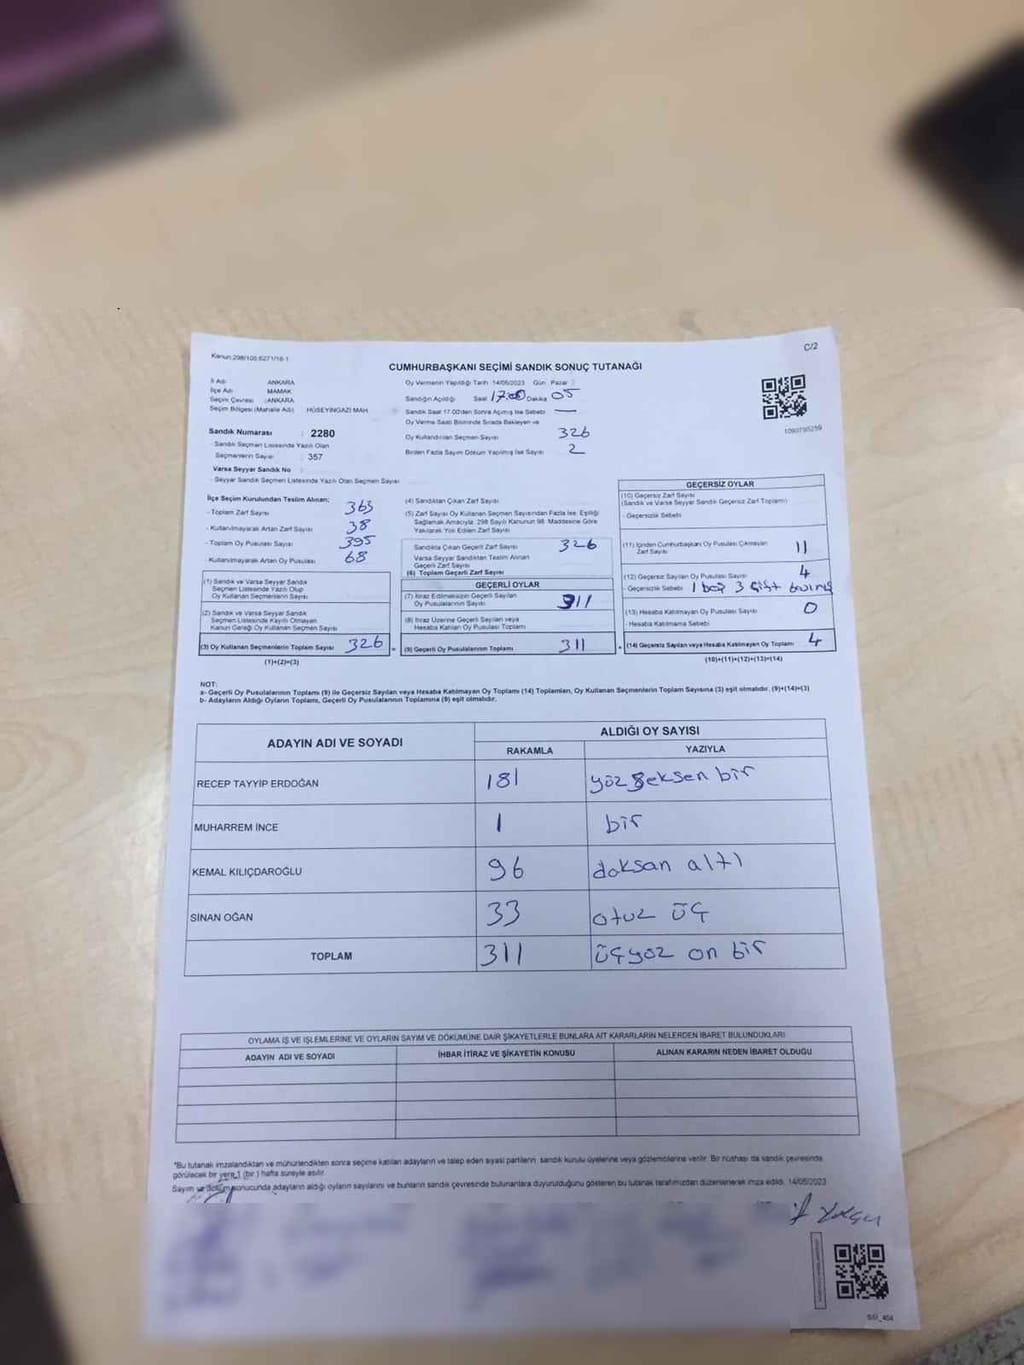 Kanun:298/105.6271/16-1
C/2
CUMHURBAŞKANI SEÇİMİ SANDIK SONUÇ TUTANAĞI
İl Adı ANKARA
İlçe Adı MAMAK
Seçim Çevresi : ANKARA
Seçim Bölgesi (Mahalle Adı) HÜSEYİNGAZİ MAH
Sandık Numarası : 2280
- Sandık Seçmen Listesinde Yazılı Olan
Seçmenlerin Sayısı : 357
Varsa Seyyar Sandık No
- Seyyar Sandık Seçmen Listesinde Yazılı Olan Seçmen Sayısı
Oy Vermenin Yapıldığı Tarih 14/05/2023 Gün Pazar
Sandığın Açıldığı Saat 17:00 Dakika 05
Sandık Saat 17.00'den Sonra Açılmış İse Sebebi —
Oy Verme Saati Bitiminde Sırada Bekleyen ve
Oy Kullandırılan Seçmen Sayısı 326
Birden Fazla Sayım Döküm Yapılmış İse Sayısı 2
İlçe Seçim Kurulundan Teslim Alınan;
- Toplam Zarf Sayısı 363
- Kullanılmayarak Artan Zarf Sayısı 38
- Toplam Oy Pusulası Sayısı 395
- Kullanılmayarak Artan Oy Pusulası 68
(1) Sandık ve Varsa Seyyar Sandık
Seçmen Listesinde Yazılı Olup
Oy Kullanan Seçmenlerin Sayısı
(2) Sandık ve Varsa Seyyar Sandık
Seçmen Listesinde Kayıtlı Olmayan
Kanun Gereği Oy Kullanan Seçmen Sayısı
(3) Oy Kullanan Seçmenlerin Toplam Sayısı 326 =
(1)+(2)=(3)
(4) Sandıktan Çıkan Zarf Sayısı
(5) Zarf Sayısı Oy Kullanan Seçmen Sayısından Fazla İse, Eşitliği
Sağlamak Amacıyla; 298 Sayılı Kanunun 98. Maddesine Göre
Yakılarak Yok Edilen Zarf Sayısı
Sandıkta Çıkan Geçerli Zarf Sayısı 326
Varsa Seyyar Sandıktan Teslim Alınan
Geçerli Zarf Sayısı
(6) Toplam Geçerli Zarf Sayısı
GEÇERLİ OYLAR
(7) İtiraz Edilmeksizin Geçerli Sayılan
Oy Pusulalarının Sayısı 311
(8) İtiraz Üzerine Geçerli Sayılan veya
Hesaba Katılan Oy Pusulası Toplamı
(9) Geçerli Oy Pusulalarının Toplamı 311 +
GEÇERSİZ OYLAR
(10) Geçersiz Zarf Sayısı
(Sandık ve Varsa Seyyar Sandık Geçersiz Zarf Toplamı)
- Geçersizlik Sebebi
(11) İçinden Cumhurbaşkanı Oy Pusulası Çıkmayan
Zarf Sayısı 11
(12) Geçersiz Sayılan Oy Pusulası Sayısı 4
- Geçersizlik Sebebi 1 boş 3 çift
(13) Hesaba Katılmayan Oy Pusulası Sayısı 0
- Hesaba Katılmama Sebebi
(14) Geçersiz Sayılan veya Hesaba Katılmayan Oy Toplamı 4
(10)+(11)+(12)+(13)=(14)
NOT:
a- Geçerli Oy Pusulalarının Toplamı (9) ile Geçersiz Sayılan veya Hesaba Katılmayan Oy Toplamı (14) Toplamları, Oy Kullanan Seçmenlerin Toplam Sayısına (3) eşit olmalıdır. (9)+(14)=(3)
b- Adayların Aldığı Oyların Toplamı, Geçerli Oy Pusulalarının Toplamına (9) eşit olmalıdır.
ADAYIN ADI VE SOYADI
ALDIĞI OY SAYISI
RAKAMLA YAZIYLA
RECEP TAYYİP ERDOĞAN 181 yüz seksen bir
MUHARREM İNCE 1 bir
KEMAL KILIÇDAROĞLU 96 doksan altı
SİNAN OĞAN 33 otuz üç
TOPLAM 311 üçyüz on bir
OYLAMA İŞ VE İŞLEMLERİNE VE OYLARIN SAYIM VE DÖKÜMÜNE DAİR ŞİKAYETLERLE BUNLARA AİT KARARLARIN NELERDEN İBARET BULUNDUKLARI
ADAYIN ADI VE SOYADI İHBAR İTİRAZ VE ŞİKAYETİN KONUSU ALINAN KARARIN NEDEN İBARET OLDUĞU
*Bu tutanak imzalandıktan ve mühürlendikten sonra seçime katılan adayların ve talep eden siyasi partilerin, sandık kurulu üyelerine veya gözlemcilerine verilir. Bir nüshası da sandık çevresinde
görülecek bir yere 1 (bir ) hafta süreyle asılır.
Sayım ve döküm sonucunda adayların aldığı oyların sayılarını ve bunların sandık çevresinde bulunanlara duyurulduğunu gösteren bu tutanak tarafımızdan düzenlenerek imza edildi. 14/05/2023